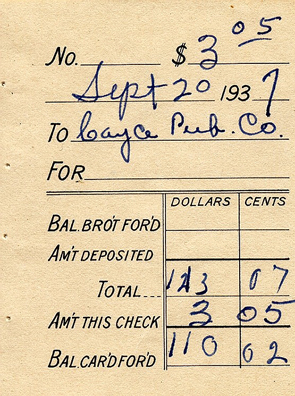 No. $ 3 05
Sept 20 1937
To Cayce Pub. Co.
FOR
DOLLARS CENTS
BAL. BRO'T FOR'D
AM'T DEPOSITED
TOTAL 113 07
AM'T THIS CHECK 3 05
BAL. CAR'D FOR'D 110 02